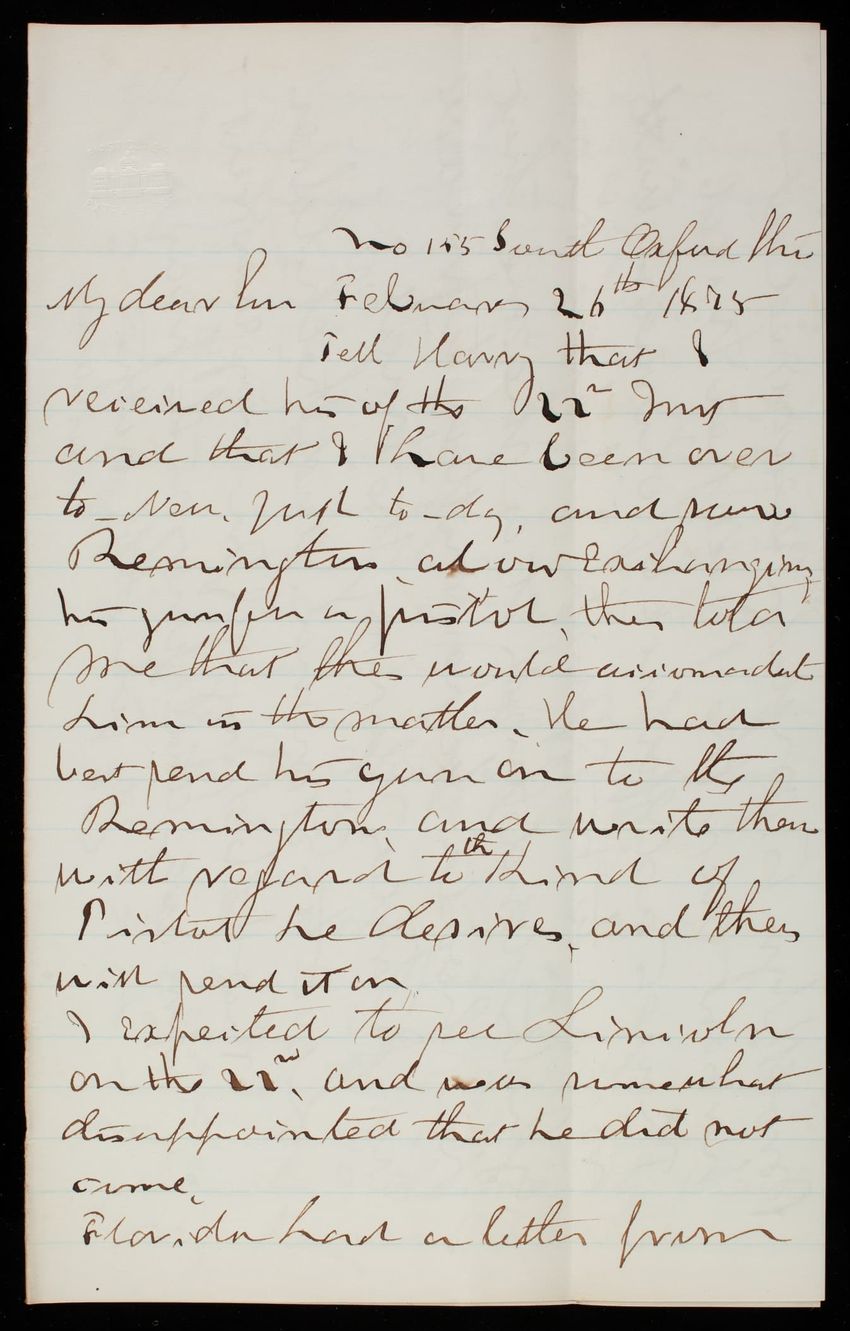 No 155 South Oxford
My dear Son February 26th 1875
Tell Harry that I
received his of the 22nd Inst
and that I have been over
to New York to-day, and
Remingtons about Exchanging
his gun for a pistol, they told
me that they would accomodate
him in the matter. He had
best send his gun on to the
Remingtons and write them
with regard to th Kind of
Pistol he desires, and they
will send it on.
I expected to see Lincoln
on the 22nd, and was somewhat
disappointed that he did not
come.
Florida had a letter from